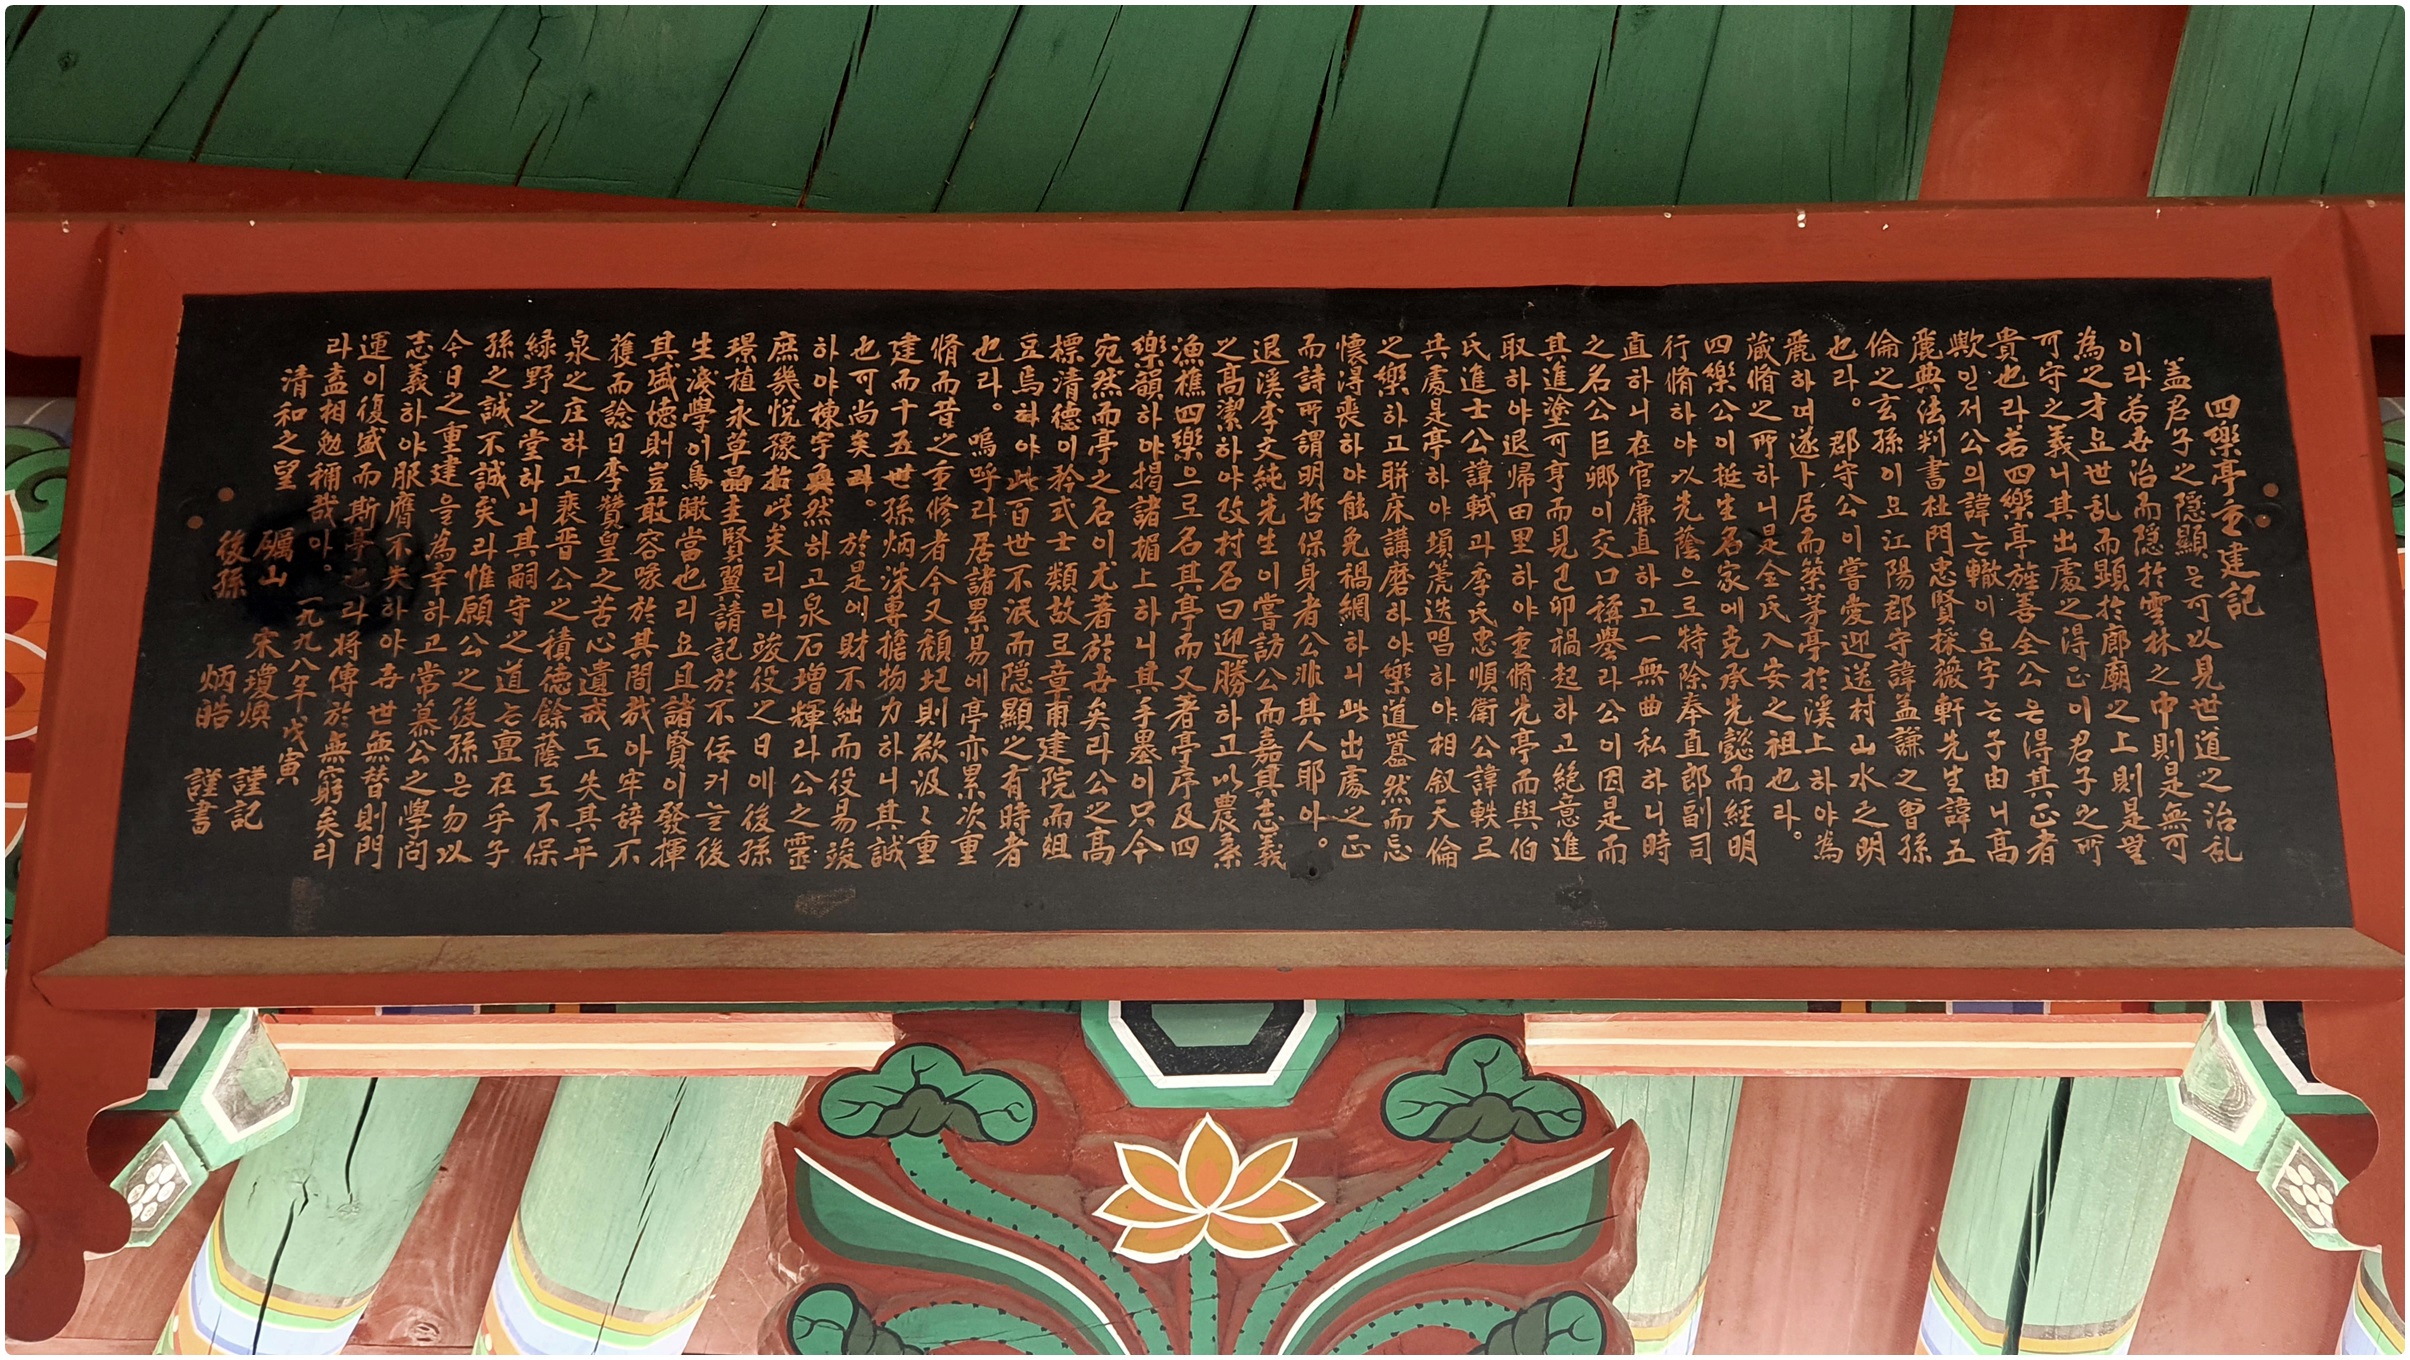 四樂亭重建記
盖君子之隱顯은可以見世道之治乱
이라若吾治而隱於雲林之中則是無可
為之才요世乱而顯於廊廟之上則是無
可守之義니其出處之得正이君子之所
貴也라若四樂亭旌善全公은得其正者
歟인저公의諱는轍이요字는子由니高
麗典法判書杜門忠賢採薇軒先生諱五
倫之玄孫이요江陽郡守諱益謙之曾孫
也라。郡守公이嘗愛迎送村山水之明
麗하며遂卜居而築茅亭於溪上하야為
藏脩之所하니是全氏入安之祖也라。
四樂公이挺生名家에克承先懿而經明
行脩하야以先蔭으로特除奉直郎副司
直하니在官廉直하고一無曲私하니時
之名公巨卿이交口稱譽라公이因是而
其進塗可亨而見己卯禍起하고絶意進
取하야退帰田里하야重脩先亭而與伯
氏進士公諱軾과季氏忠順衛公諱軼로
共處是亭하야壎箎迭唱하야相叙天倫
之樂하고聯床講磨하야樂道囂然而忘
懷得喪하야能免禍網하니此出處之正
而詩所謂明哲保身者公非其人耶아。
退溪李文純先生이嘗訪公而嘉其志義
之高潔하야改村名曰迎勝하고以農桑
漁樵四樂으로名其亭而又著亭序及四
樂韻하야揭諸楣上하니其手墨이只今
宛然而亭之名이尤著於吾矣라公之高
標清德이矜式士類故로章甫建院而俎
豆焉하야此百世不泯而隱顯之有時者
也라。嗚呼라居諸累易에亭亦累次重
脩而昔之重修者今又頹圮則欲汲汲重
建而十五世孫炳洙專擔物力하니其誠
也可尚矣라。於是에財不絀而役易竣
하야棟宇奐然하고泉石增輝라公之靈
庶幾悅豫於此矣리라竣役之日에後孫
璟植永草晶圭賢翼請記於不佞커늘後
生淺學이鳥瞰當也리요且諸賢이發揮
其盛徳則豈敢容喙於其間哉아牢辞不
獲而諗曰李贊皇之苦心遺戒도失其平
泉之庄하고裵晋公之積德餘蔭도不保
緑野之堂하니其嗣守之道는亶在乎子
孫之誠不誠矣라惟願公之後孫은勿以
今日之重建을為幸하고常慕公之學問
志義하야服膺不失하야吾世無替則門
運이復盛而斯亭也라将傳於無窮矣리
라盍相勉穪哉아。一九九八年戊寅
清和之望
礪山宋瓊煥謹記
後孫炳晧謹書